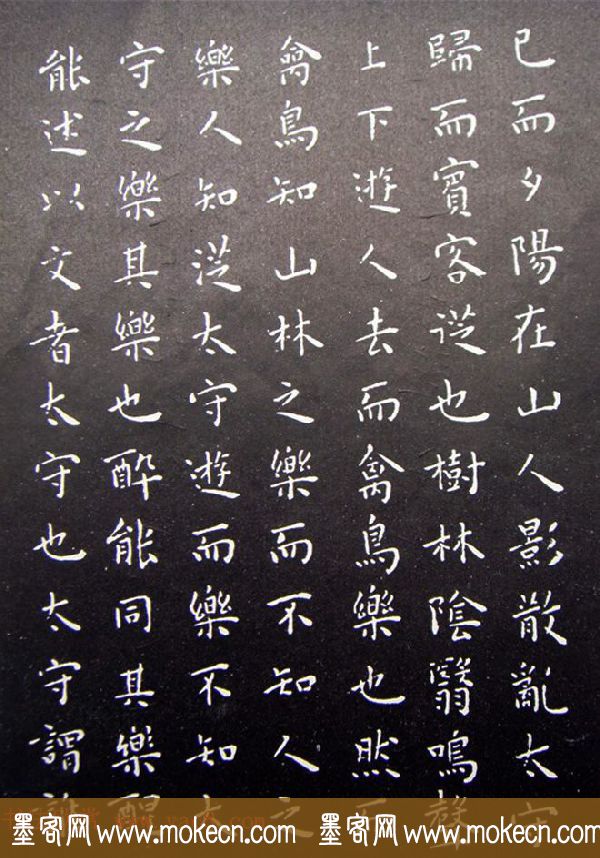 已而夕陽在山人影散亂太守
歸而賓客從也樹林陰翳鳴聲
上下遊人去而禽鳥樂也然而
禽鳥知山林之樂而不知人之
樂人知從太守遊而樂不知太
守之樂其樂也醉能同其樂醒
能述以文者太守也太守謂
墨客网 www.mokecn.com 墨客网 www.mokecn.com